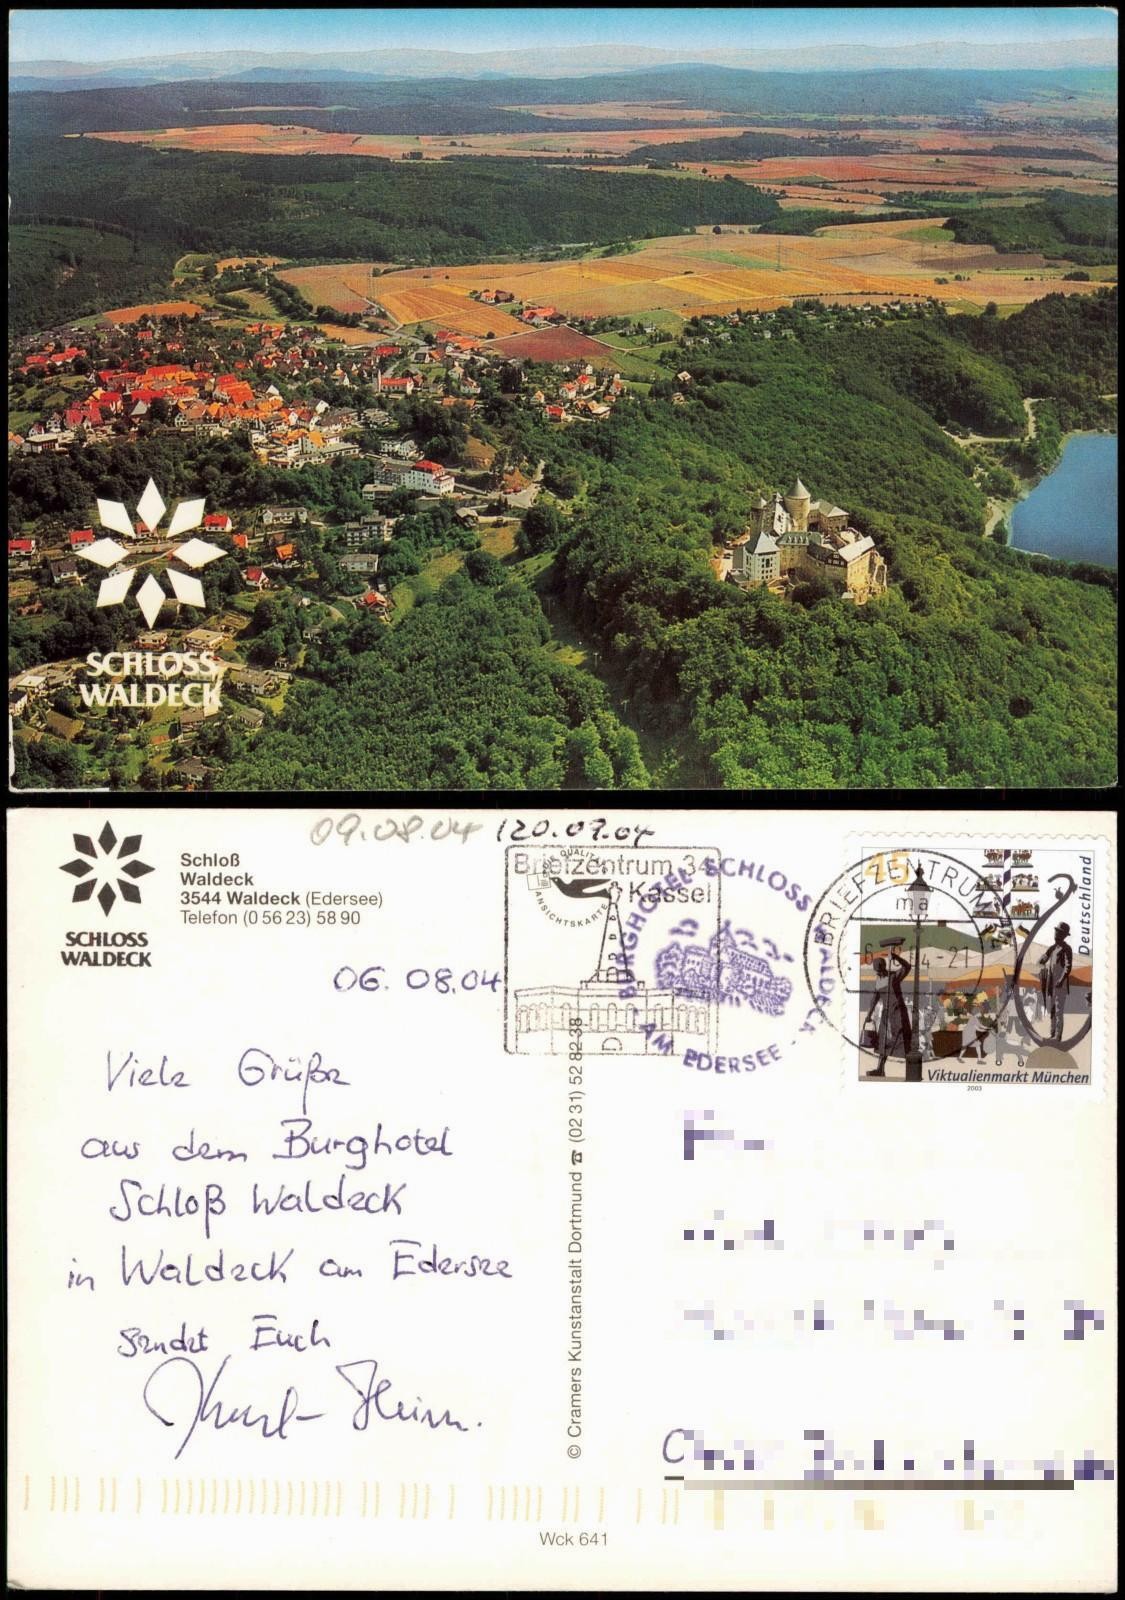 SCHLOSS
WALDECK
09.08.04
120.09.04
Schloß
Waldeck
3544 Waldeck (Edersee)
Telefon (0 56 23) 58 90
SCHLOSS
WALDECK
06.08.04
Briefzentrum 34
Kassel
QUALITÄT
ANSICHTSKARTE
BURGHOTEL SCHLOSS WALDECK
- AM EDERSEE -
BRIEFZENTRUM 34
ma
-6.8.04-21
45
Deutschland
Viktualienmarkt München
2003
Viele Grüße
aus dem Burghotel
Schloß Waldeck
in Waldeck am Edersee
sendet Euch
© Cramers Kunstanstalt Dortmund ☎ (02 31) 52 82 38
Wck 641